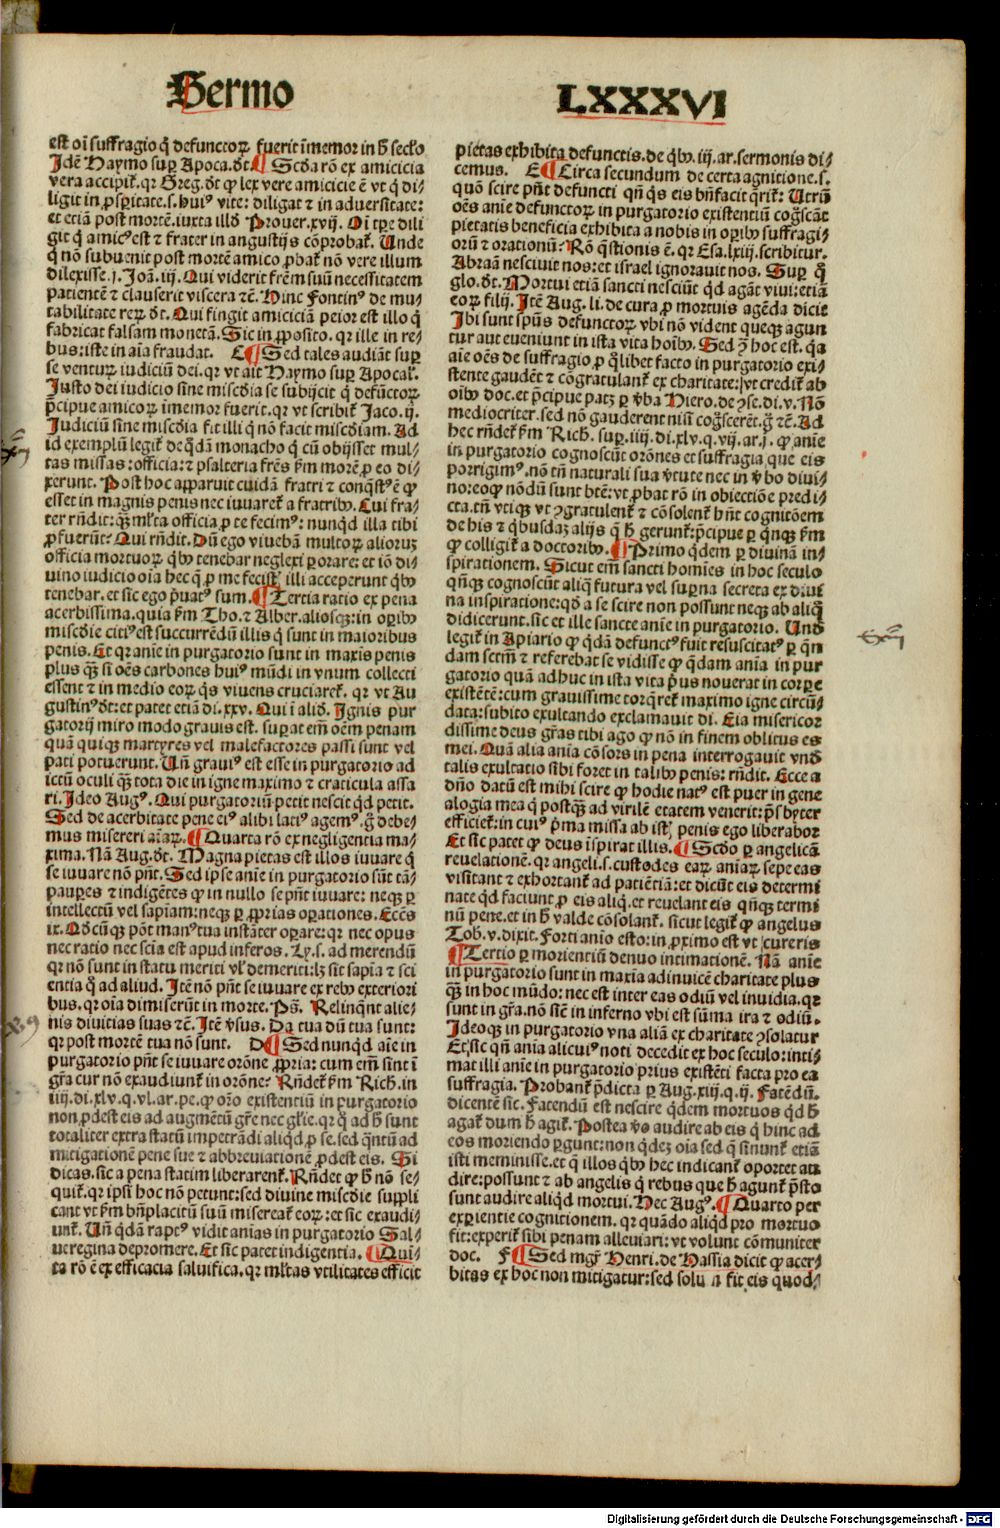 Sermo LXXXVI
est oī suffragio q̄ defunctoꝝ fuerit īmemor in h̄ seclo
Idē Haymo suꝑ Apoca. dt̄. ¶ Scd̄a rō ex amicicia
vera accipit̄. qꝛ Greg. dt̄ ꝙ lex vere amicicie ē vt q̄ di⸗
ligit in ꝓsꝑitate. s. huiꝰ vite: diligat ⁊ in aduersitate:
et etiā post mortē. iuxta illd̄ Prouer. xvij. Oī tꝑe dili
git q̄ amicꝰ est ⁊ frater in angustijs cōprobat̄. Unde
q̄ nō subuenit post mortē amico ꝓbat̄ nō vere illum
dilexisse. j. Joā. iij. Qui viderit frēm suū necessitatem
patientē ⁊ clauserit viscera ⁊c̄. Hinc Fontinꝰ de mu⸗
tabilitate reꝝ dt̄. Qui fingit amiciciā peior est illo q̄
fabricat falsam monetā. Sic in ꝓposito. qꝛ ille in re⸗
bus: iste in aīa fraudat. C ¶ Sed tales audiāt suꝑ
se venturū iudiciū dei. qꝛ vt ait Haymo suꝑ Apocal̄.
Justo dei iudicio sine miscd̄ia se subijcit q̄ defūctoꝝ
p̄cipue amicoꝝ īmemor fuerit. qꝛ vt scribit̄ Jaco. ij.
Judiciū sine miscd̄ia fit illi q̄ nō facit miscd̄iam. Ad
id exemplū legit̄ de q̄dā monacho q̄ cū obijsset mul⸗
tas missas: officia: ⁊ psalteria frēs ẜm morē ꝓ eo di⸗
xerunt. Post hoc apparuit cuidā fratri ⁊ conq̄stꝰ ē ꝙ
esset in magnis penis nec iuuaret̄ a fratribꝰ. Cui fra⸗
ter rn̄dit: qꝫ ml̄ta officia ꝓ te fecimꝰ: nunqd̄ illa tibi
ꝓfuerūt? Qui rn̄dit. Dū ego viuebā multoꝝ alioruꝫ
officia mortuoꝝ q̄bꝰ tenebar neglexi ꝑorare: et iō di⸗
uino iudicio oīa hec q̄ ꝓ me fecist̄ illi acceperunt q̄bꝰ
tenebar. et sic ego p̄uatꝰ sum. ¶ Tertia ratio ex pena
acerbissima. quia ẜm Tho. ⁊ Alber. aliosqꝫ: in oꝑibꝰ
miscd̄ie citiꝰ est succurrēdū illis q̄ sunt in maioribus
penis. Et qꝛ anie in purgatorio sunt in maxīs penis
plus qꝫ si oēs carbones huiꝰ mūdi in vnum collecti
essent ⁊ in medio eoꝝ q̄s viuens cruciaret̄. qꝛ vt Au
gustinꝰ dt̄: et patet etiā di. xxv. Qui ī aliō. Ignis pur
gatorij miro modo grauis est. suꝑat em̄ oēm penam
quā quiqꝫ martyres vel malefactores passi sunt vel
pati potuerunt. Un̄ grauiꝰ est esse in purgatorio ad
ictū oculi qꝫ tota die in igne maximo ⁊ craticula assa
ri. Ideo Augꝰ. Qui purgatoriū petit nescit qd̄ petit.
Sed de acerbitate pene eiꝰ alibi latiꝰ agemꝰ. g̊ debe⸗
mus misereri aīaꝝ. ¶ Quarta rō ex negligentia ma⸗
xima. Nā Aug. dt̄. Magna pietas est illos iuuare q̄
se iuuare nō pn̄t. Sed ipse anīe in purgatorio sūt tā⸗
paupes ⁊ indigētes ꝙ in nullo se pn̄t iuuare: neqꝫ ꝑ
intellectū vel sapīam: neqꝫ ꝑ ꝓprias oꝑationes. Eccēs
ix. Qd̄cūqꝫ pōt manꝰ tua instāter oꝑare: qꝛ nec opus
nec ratio nec scīa est apud inferos. Ly. s. ad merendū
qꝛ nō sunt in statu meriti vl̄ demeriti: lꝫ sit sapīa ⁊ sci
entia q̄ ad aliud. Itē nō pn̄t se iuuare ex rebꝰ exteriori
bus. qꝛ oīa dimiserūt in morte. Ps̄. Relinqn̄t alie⸗
nis diuitias suas ⁊c̄. Itē v̄sus. Da tua dū tua sunt:
qꝛ post mortē tua nō sunt. D ¶ Sed nunqd̄ aīe in
purgatorio pn̄t se iuuare orōne ꝓpria: cum em̄ sint ī
gr̄a cur nō exaudiunt̄ in orōne? Rn̄det̄ ẜm Rich. in
iiij. di. xlv. q. vl. ar. pe. ꝙ orō existentiū in purgatorio
non ꝓdest eis ad augmētū gr̄e nec gl̄ie. qꝛ q̄ ad h̄ sunt
totaliter extra statū impetrādi aliqd̄ ꝓ se. sed q̄ntū ad
mitigationē pene sue ⁊ abbreuiationē ꝓdest eis. Si
dicas. sic a pena statim liberarent̄. Rn̄det ꝙ h̄ nō se⸗
quit̄. qꝛ ipsi hoc nō petunt: sed diuine miscd̄ie suppli
cant vt ẜm bn̄placitū suū misereat̄ eoꝝ: et sic exaudi⸗
unt̄. Un̄ q̄dā raptꝰ vidit anīas in purgatorio Sal⸗
ue regina depromere. Et sic patet indigentia. ¶ Qui⸗
ta rō ē ex efficacia saluifica. qꝛ ml̄tas vtilitates efficit
pietas exhibita defunctis. de q̄bꝰ. iij. ar. sermonis di⸗
cemus. E ¶ Circa secundum de certa agnitione. s.
quō scire pn̄t defuncti qn̄ q̄s eis bn̄facit q̄rit̄: Utrū
oēs anīe defunctoꝝ in purgatorio existentiū cog̊scāt
pietatis beneficia exhibita a nobis in oꝑibꝰ suffragi⸗
orū ⁊ orationū? Rō q̄stionis ē. qꝛ Esa. lxiij. scribitur.
Abraā nesciuit nos: et israel ignorauit nos. Suꝑ q̄
glo. dt̄. Mortui etiā sancti nesciūt qd̄ agāt viui: etiā
eoꝝ filij. Itē Aug. li. de cura ꝓ mortuis agēda dicit
Ibi sunt spūs defunctoꝝ vbi nō vident queqꝫ agun
tur aut eueniunt in ista vita hoībꝰ. Sed ꝯ̄ hoc est. qꝛ
aīe oēs de suffragio ꝓ q̄libet facto in purgatorio exi⸗
stente gaudēt ⁊ cōgratulant̄ ex charitate: vt credit̄ ab
oībꝰ doc. et p̄cipue patꝫ ꝑ v̄ba Hiero. de ꝯse. di. v. Nō
mediocriter. sed nō gauderent nisi cog̊scerēt. g̊ ⁊c̄. Ad
hec rn̄det̄ ẜm Rich. suꝑ. iiij. di. xlv. q. vij. ar. j. ꝙ anīe
in purgatorio cognoscūt orōnes et suffragia que eis
porrigimꝰ. nō tn̄ naturali sua v̄tute nec in v̄bo diui⸗
no: eo ꝙ nōdū sunt btē: vt ꝓbat rō in obiectiōe predi⸗
cta. tn̄ vtiqꝫ vt ꝯgratulent̄ ⁊ cōsolent̄ hn̄t cognitōem
de his ⁊ q̄busdaꝫ alijs q̄ h̄ gerunt̄: p̄cipue ꝑ q̄nqꝫ ẜm
ꝙ colligit̄ a doctoribꝰ. ¶ Primo q̄dem ꝑ diuinā in⸗
spirationem. Sicut em̄ sancti homīes in hoc seculo
qn̄qꝫ cognoscūt aliq̄ futura vel suꝑna secreta ex diui
na inspiratione: qd̄ a se scire non possunt neqꝫ ab aliq̊
didicerunt. sic et ille sancte anīe in purgatorio. Und̄
legit̄ in Apiario ꝙ q̄dā defunctꝰ fuit resuscitatꝰ ꝑ q̄n
dam sctm̄ ⁊ referebat se vidisse ꝙ q̄dam anīa in pur
gatorio quā adhuc in ista vita p̄us nouerat in corꝑe
existētē: cum grauissime torq̄ret̄ maximo igne circū⸗
data: subito exultando exclamauit di. Eia misericor
dissime deus gr̄as tibi ago ꝙ nō in finem oblitus es
mei. Quā alia anīa cōsors in pena interrogauit vnd̄
talis exultatio sibi foret in talibꝰ penis: rn̄dit. Ecce a
dn̄o datū est mihi scire ꝙ hodie natꝰ est puer in gene
alogia mea q̄ postqꝫ ad virilē etatem venerit: p̄sbyter
efficiet̄: in cuiꝰ p̄ma missa ab istꝭ penis ego liberabor
Et sic patet ꝙ deus īspirat illis. ¶ Scd̄o ꝑ angelicā
reuelationē. qꝛ angeli. s. custodes eaꝝ aniaꝝ sepe eas
visitant ⁊ exhortant̄ ad patiētiā: et dicūt eis determi
nate qd̄ faciunt ꝓ eis aliq̄. et reuelant eis qn̄qꝫ termi
nū pene. et in h̄ valde cōsolant̄. sicut legit̄ ꝙ angelus
Tob. v. dixit. Forti anīo esto: in ꝓximo est vt cureris
¶ Tertio ꝑ morientiū denuo intimationē. Nā anīe
in purgatorio sunt in maxīa adinuicē charitate plus
qꝫ in hoc mūdo: nec est inter eas odiū vel inuidia. qꝛ
sunt in gr̄a. nō sic̄ in inferno vbi est sūma ira ⁊ odiū.
Ideoqꝫ in purgatorio vna aliā ex charitate ꝯsolatur
Et sic qn̄ anīa alicuiꝰ noti decedit ex hoc seculo: inti⸗
mat illi anīe in purgatorio prius existēti facta pro ea
suffragia. Probant̄ p̄dicta ꝑ Aug. xiij. q. ij. Fatēdū.
dicentē sic. Fatendū est nescire q̄dem mortuos qd̄ h̄
agat̄ dum h̄ agit̄. Postea v̊o audire ab eis q̄ hinc ad
eos moriendo ꝑgunt: non qdeꝫ oīa sed q̄ sinunt̄ etiā
isti meminisse. et q̄ illos q̄bꝰ hec indicant̄ oportet au
dire: possunt ⁊ ab angelis q̄ rebus que h̄ agunt̄ p̄sto
sunt audire aliqd̄ mortui. Hec Augꝰ. ¶ Quarto per
exꝑientie cognitionem. qꝛ quādo aliqd̄ pro mortuo
fit: exꝑit̄ sibi penam alleuiari: vt volunt cōmuniter
doc. F ¶ Sed mgr̄ Henri. de Hassia dicit ꝙ acer⸗
bitas ex hoc non mitigatur: sed solū a fit eis quod⸗
Digitalisierung gefördert durch die Deutsche Forschungsgemeinschaft - DFG